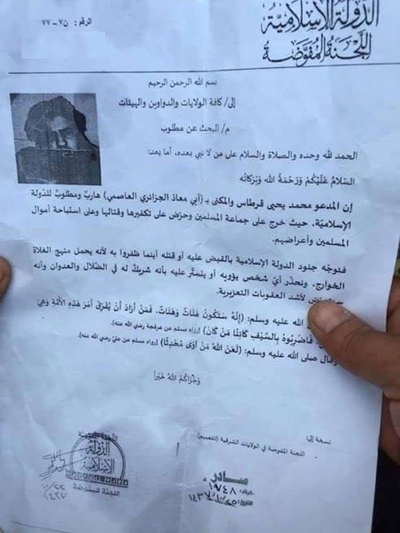 الدولة الإسلامية
اللجنة المفوضة
الرقم: ن٧-٧٧
بسم الله الرحمن الرحيم
إلى/ كافة الولايات والدواوين والهيئات
م/ البحث عن مطلوب
الحمد لله وحده والصلاة والسلام على من لا نبي بعده، أما بعد:
السَّلَامُ عَلَيْكُمْ وَرَحْمَةُ اللهِ وَبَرَكَاتُه
إن المدعو محمد يحيى قرطاس والمكنى بـ (أبي معاذ الجزائري العاصمي) هارب ومطلوب للدولة
الإسلامية، حيث خرج على جماعة المسلمين وحرّض على تكفيرها وقتالها وعلى استباحة أموال
المسلمين وأعراضهم.
فنوجّه جنود الدولة الإسلامية بالقبض عليه أو قتله أينما ظفروا به لأنه يحمل منهج الغلاة
الخوارج. ونحذّر أي شخص يؤويه أو يتستّر عليه بأنه شريك له في الضلال والعدوان وأنه
لأشد العقوبات التعزيرية.
الله عليه وسلم: (إنَّهُ سَتَكُونُ هَنَاتٌ وَهَنَاتٌ، فَمَنْ أَرَادَ أَنْ يُفَرِّقَ أَمْرَ هَذِهِ الْأُمَّةِ وَهِيَ
فَاضْرِبُوهُ بِالسَّيْفِ كَائِنًا مَنْ كَانَ) (رواه مسلم عن عرفجة رضي الله عنه)
وقال صلى الله عليه وسلم: (لَعَنَ اللهُ مَنْ آوَى مُحْدِثًا) (رواه مسلم عن علي رضي الله عنه)
وَجَزَاكُمُ اللهُ خَيْراً
نسخة إلى:
اللجنة المفوضة في الولايات الشرقية (للتعميم)
الدولة
الإسلامية
اللجنة المفوضة
صادر